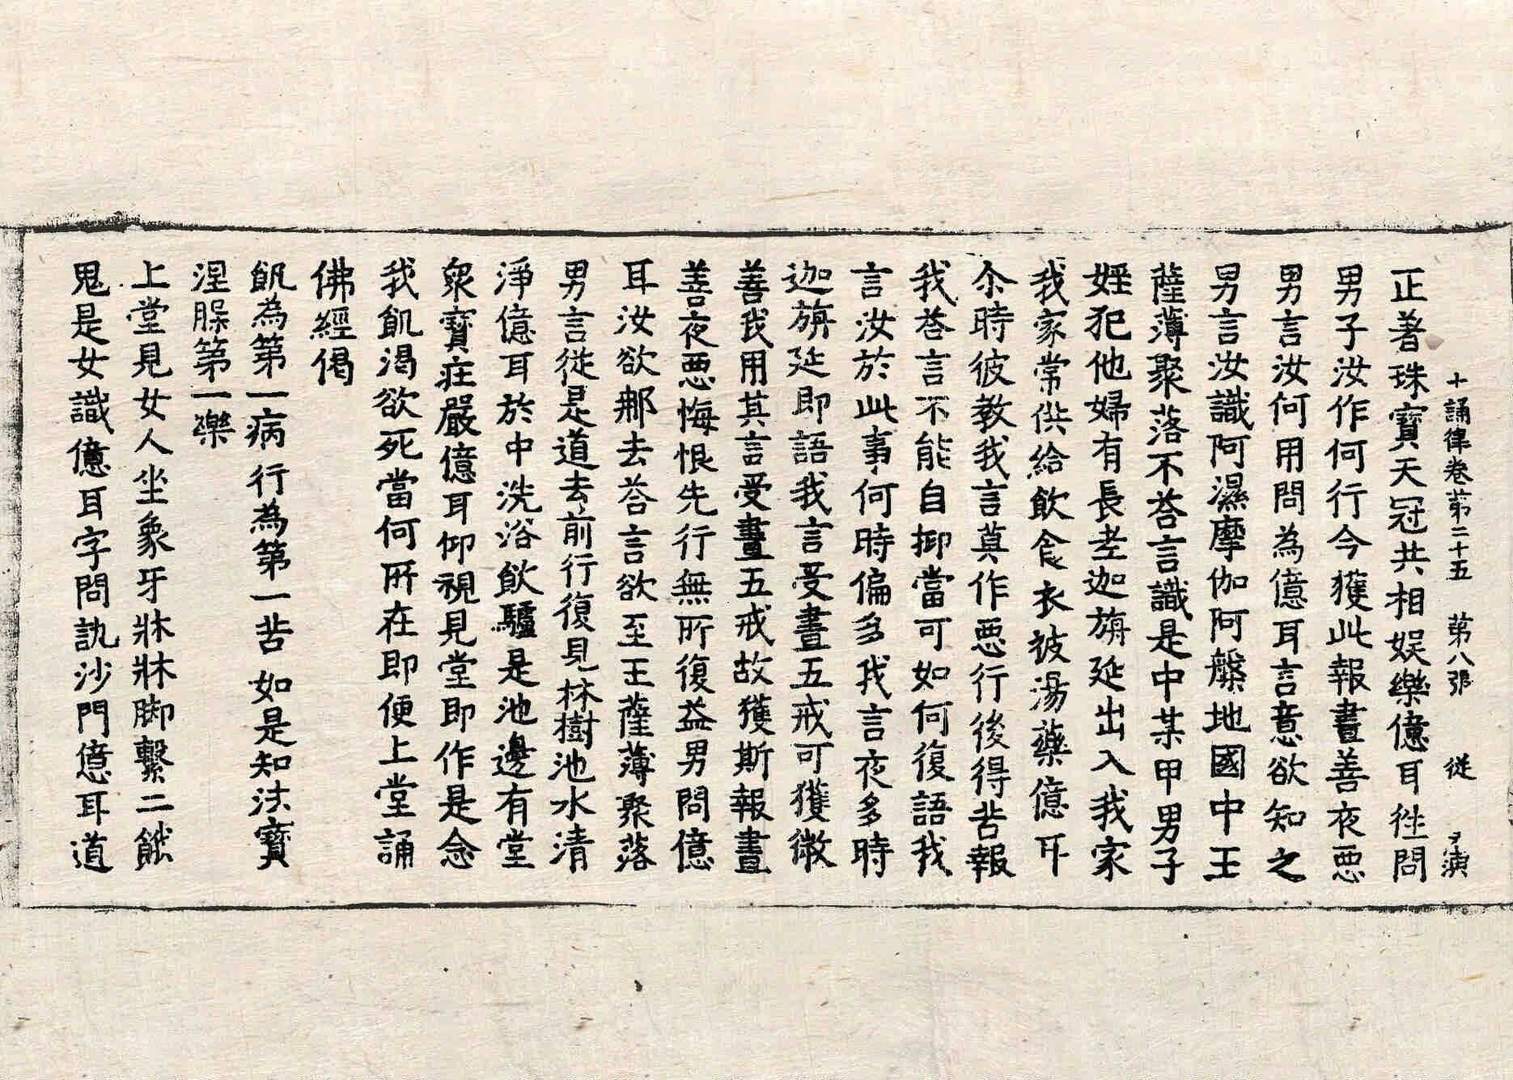 十誦律卷苐二十五 苐八張 從
正著珠寶天冠共相娱樂億耳徃問
男子汝作何行今獲此報晝善夜惡
男言汝何用問為億耳言意欲知之
男言汝識阿濕摩伽阿槃地國中王
薩薄聚落不荅言識是中某甲男子
婬犯他婦有長老迦旃延出入我家
我家常供給飲食衣被湯藥億耳
尒時彼教我言莫作惡行後得苦報
我荅言不能自抑當可如何復語我
言汝於此事何時偏多我言夜多時
迦旃延即語我言受晝五戒可獲微
善我用其言受晝五戒故獲斯報晝
善夜惡悔恨先行無所復益男問億
耳汝欲那去荅言欲至王薩薄聚落
男言從是道去前行復見林樹池水清
淨億耳於中洗浴飲驢是池邊有堂
衆寶莊嚴億耳仰視見堂即作是念
我飢渴欲死當何所在即便上堂誦
佛經偈
飢為第一病 行為第一苦 如是知法寶
涅槃第一樂
上堂見女人坐象牙牀牀脚繫二餓
鬼是女識億耳字問訊沙門億耳道